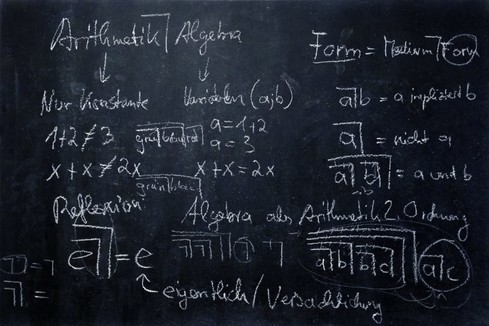 Arithmetik | Algebra
Form = Medium | Form
Nur Konstante
Variablen (a,b)
a b = a impliziert b
1+2 ≠ 3
a = 1+2
a = 3
a = nicht a
x + x ≠ 2x
x + x = 2x
a b = a und b
Reflexion
Algebra als Arithmetik 2. Ordnung
e = e
a b b d a c
eigentlich / Versachlichung